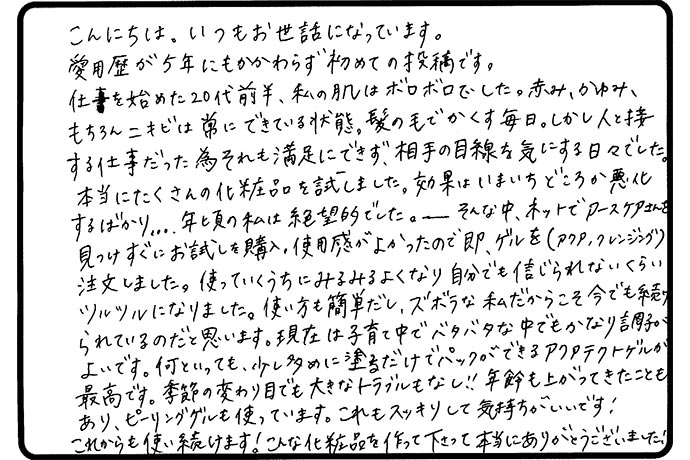 こんにちは。いつもお世話になっています。
愛用歴が5年にもかかわらず初めての投稿です。
仕事を始めた20代前半、私の肌はボロボロでした。赤み、かゆみ、
もちろんニキビは常にできている状態。髪の毛でかくす毎日。しかし人と接
する仕事だった為それも満足にできず、相手の目線を気にする日々でした。
本当にたくさんの化粧品を試しました。効果はいまいちどころか悪化
するばかり.... 年頃の私は絶望的でした。― そんな中、ネットでアースケアさんを
見つけすぐにお試しを購入。使用感がよかったので即、ゲルを(アクア,クレンジング)
注文しました。使っていくうちにみるみるよくなり自分でも信じられないくらい
ツルツルになりました。使い方も簡単だし、ズボラな私だからこそ今でも続け
られているのだと思います。現在は子育て中でバタバタな中でもかなり調子が
よいです。何といっても、少し多めに塗るだけでパックができるアクアテクトゲルが
最高です。季節の変わり目でも大きなトラブルもなし!! 年齢も上がってきたことも
あり、ピーリングゲルも使っています。これもスッキリして気持ちがいいです!
これからも使い続けます!こんな化粧品を作って下さって本当にありがとうございました!